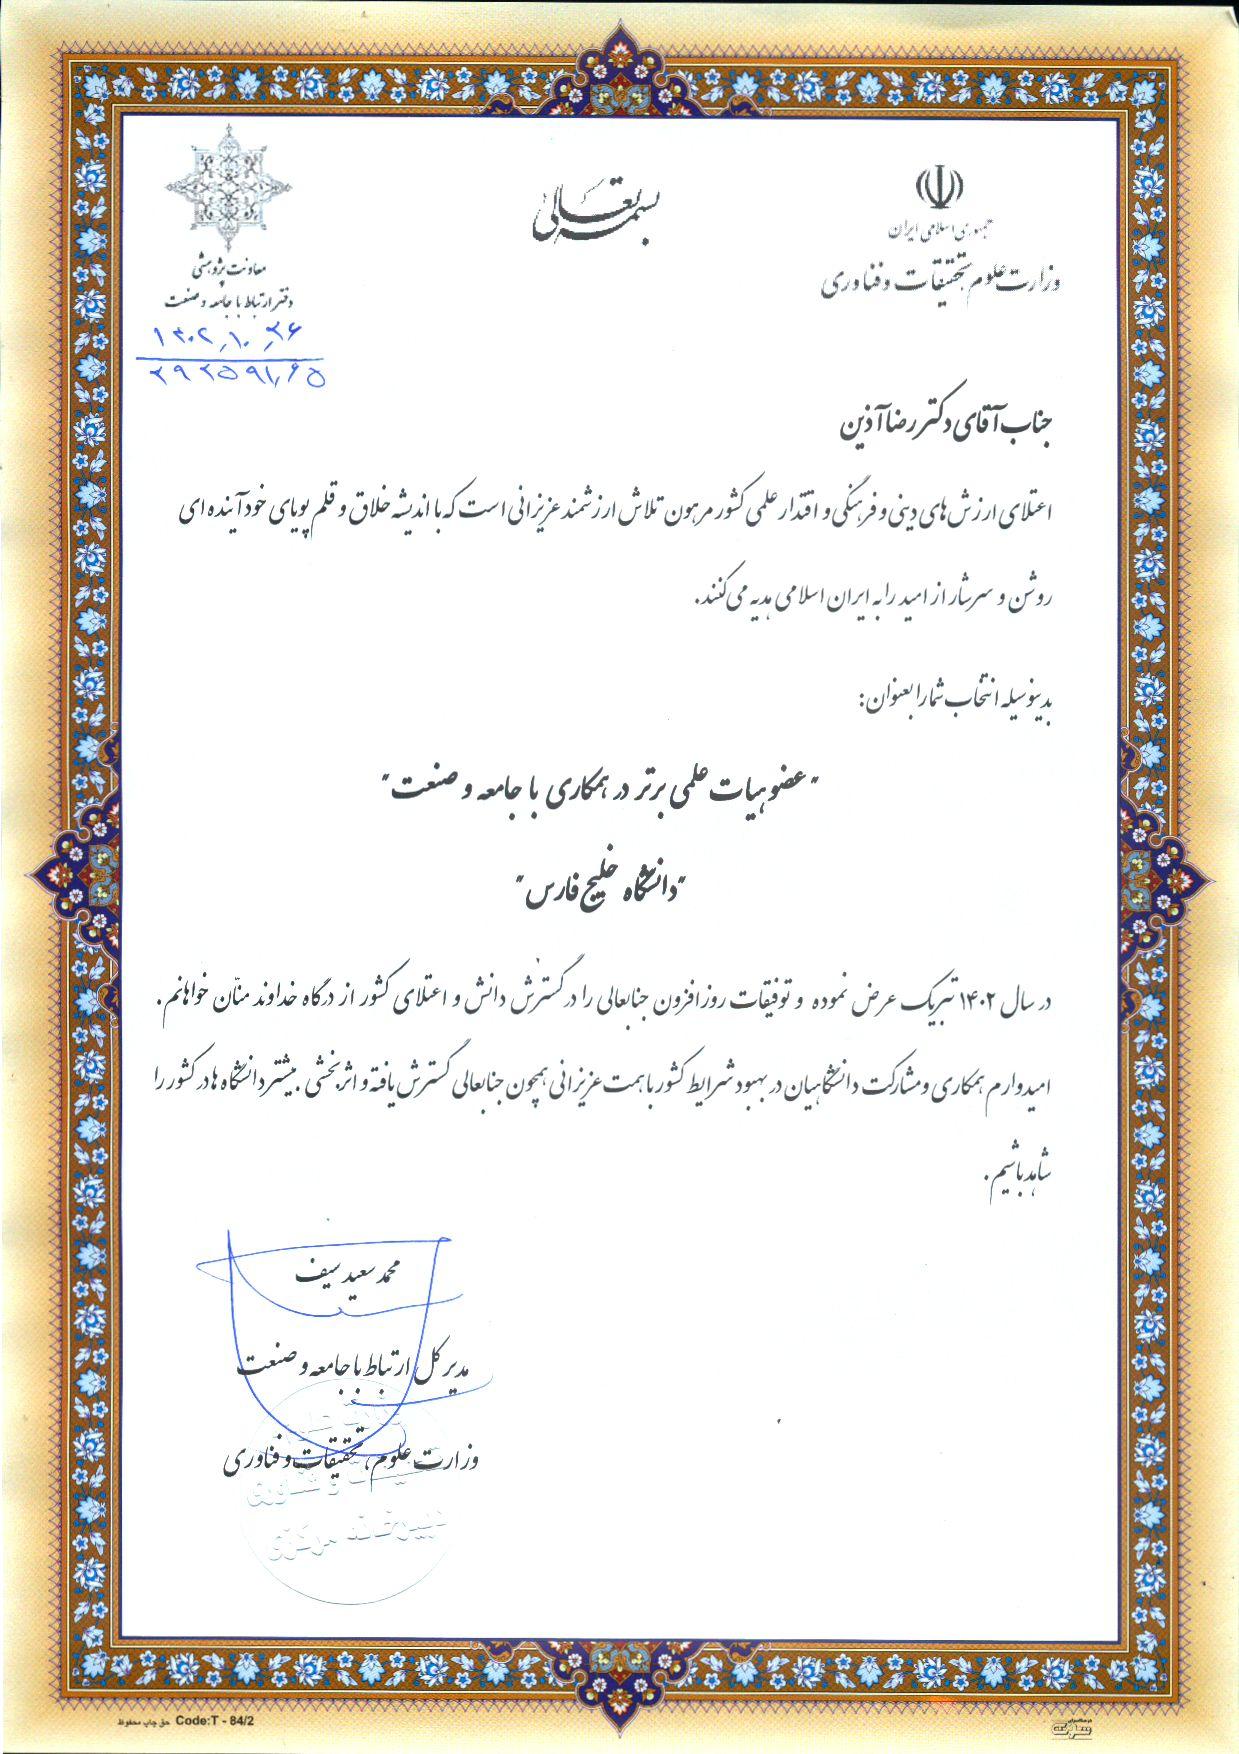 بسمه تعالی
جمهوری اسلامی ایران
وزارت علوم تحقیقات و فناوری
معاونت پژوهشی
دفتر ارتباط با جامعه و صنعت
۱۴۰۲,۱۰,۲۶
جناب آقای دکتر رضا آذین
اعتلای ارزش های دینی و فرهنگی و اقتدار علمی کشور مرهون تلاش ارزشمند عزیزانی است که با اندیشه خلاق و قلم پویای خود آینده ای
روشن و سرشار از امید را به ایران اسلامی هدیه می کنند.
بدینوسیله انتخاب شما را بعنوان:
"عضو هیات علمی برتر در همکاری با جامعه و صنعت"
"دانشگاه خلیج فارس"
در سال ۱۴۰۲ تبریک عرض نموده و توفیقات روزافزون جنابعالی را در گسترش دانش و اعتلای کشور از درگاه خداوند منّان خواهانم.
امیدوارم همکاری و مشارکت دانشگاهیان در بهبود شرایط کشور با همت عزیزانی همچون جنابعالی گسترش یافته و اثربخشی بیشتر دانشگاه ها در کشور را
شاهد باشیم.
محمد سعید سیف
مدیر کل ارتباط با جامعه و صنعت
وزارت علوم، تحقیقات و فناوری
دبیرخانه مرکزی
حق چاپ محفوظ Code:T - 84/2